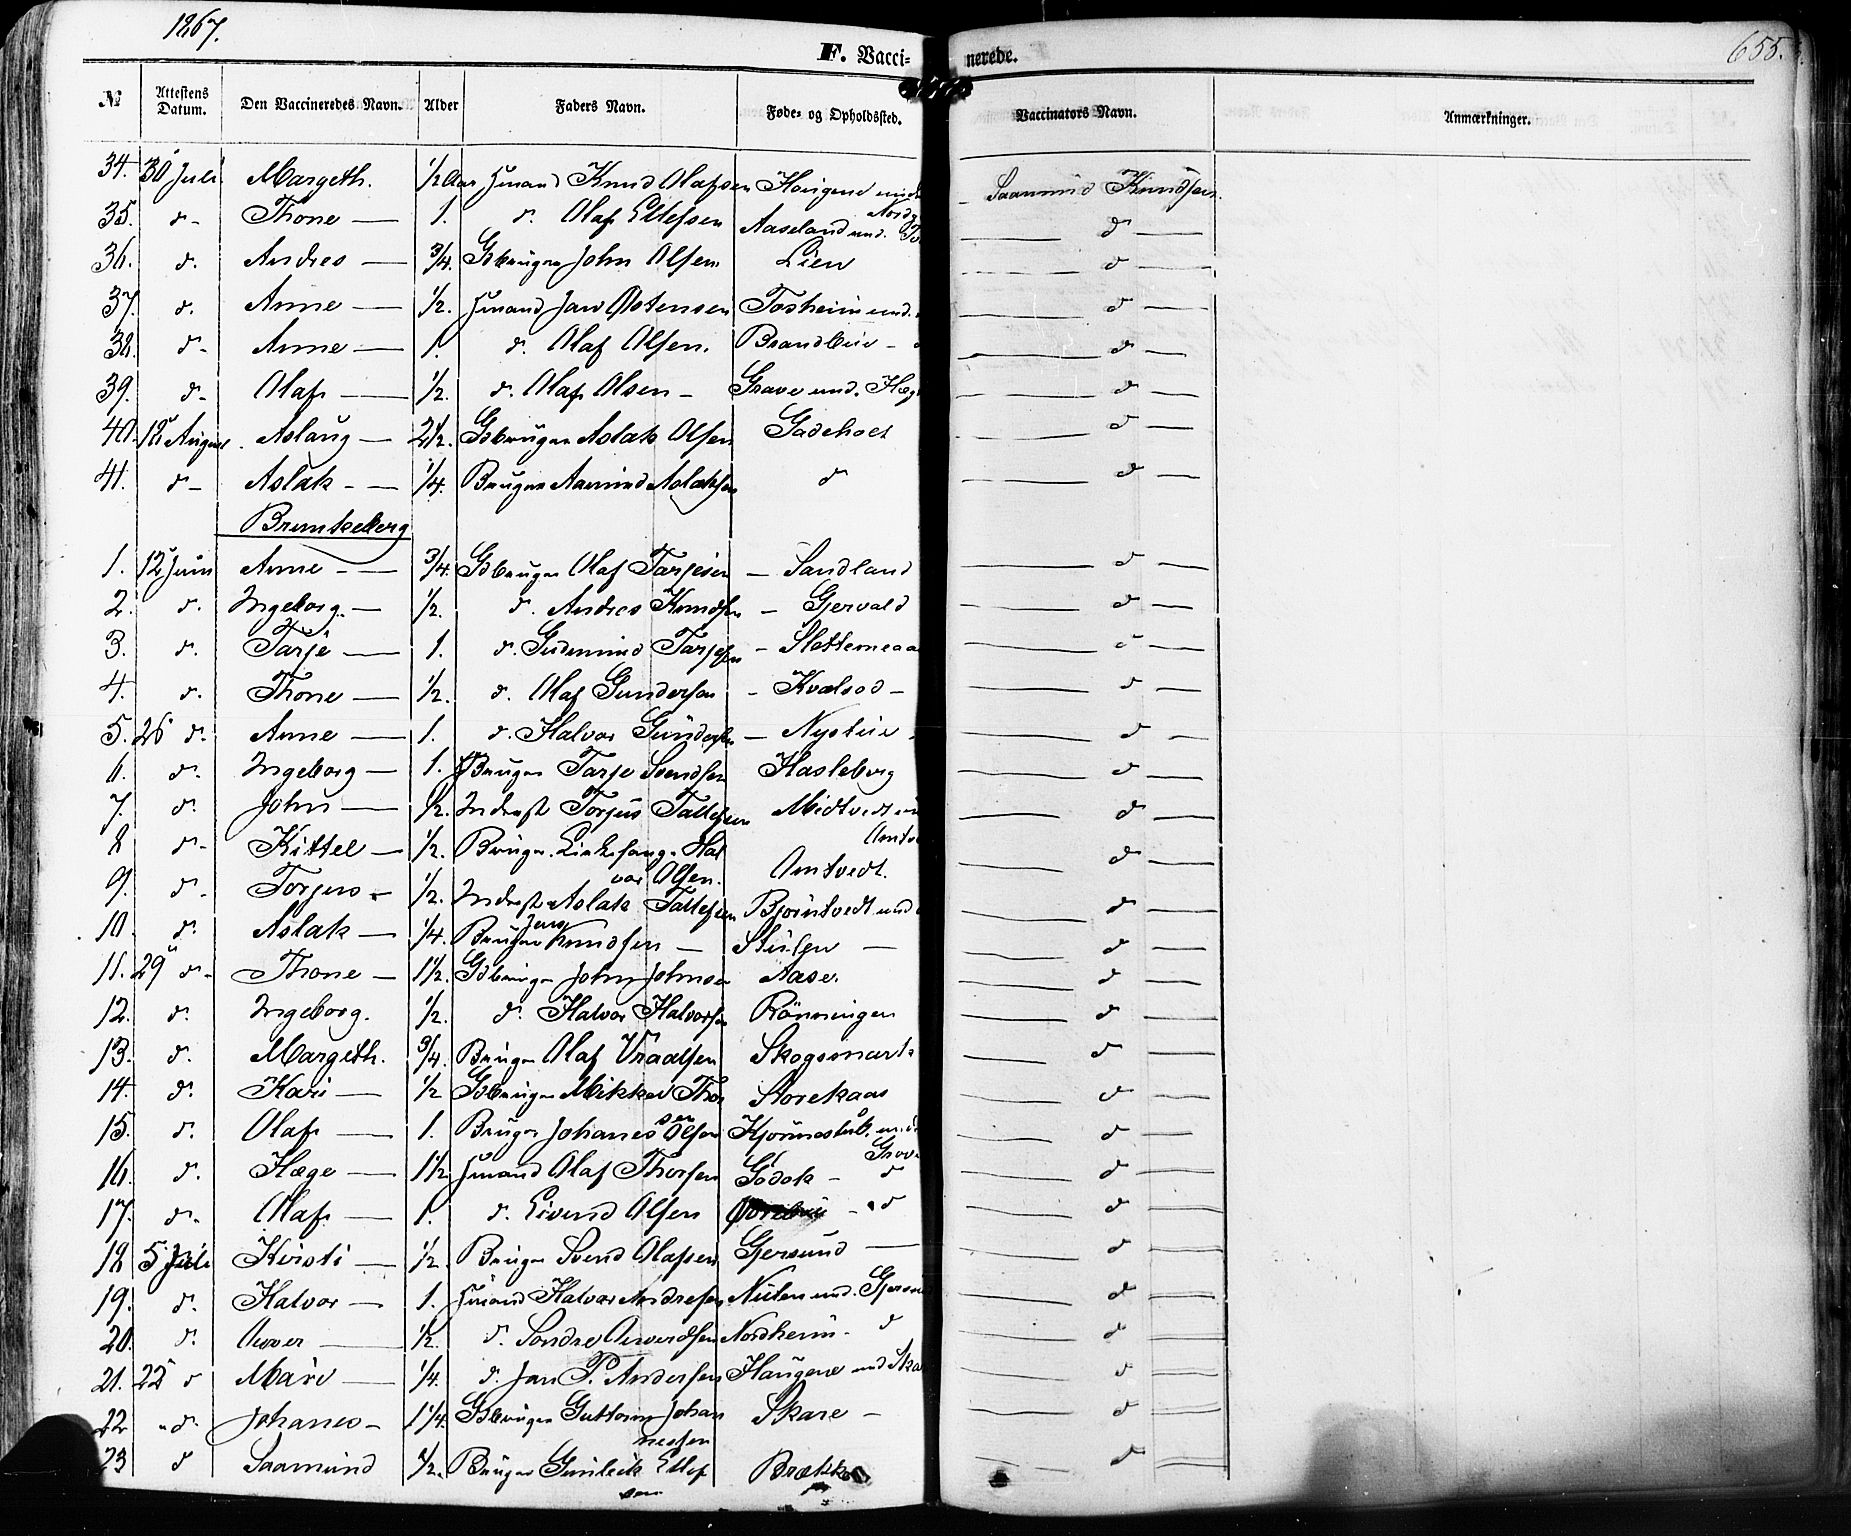 1867.
655.
F. Vacci-
nerede.
№ Attestens Datum. Den Vaccineredes Navn. Alder Faders Navn. Føde- og Opholdssted. Vaccinators Navn. Anmærkninger.
34. 30 Juli Margeth. 1/2 Aar Hmand Knud Olafsen Haugene und Saamund Knudsen.
35. d- Thone — 1. d. Olaf Ellefsen Aaseland und. d —
36. d. Andres — 3/4. Gbruger John Olsen Lien d —
37. d. Anne — 1/2. Hmand Jan Østensen Tosheim und. d —
38. d- Anne — 1. d. Olaf Olsen. Brandlie - d —
39. d- Olaf — 1/2. d. Olaf Olsen - Grave und. Hæg d —
40. 18 August Aslaug — 2 1/2. Gbruger Aslak Olsen Gadeholt d —
41. d- Aslak - — 1/4. Bruger Aamund Aslaksen d d —
Brunkeberg
1. 12 Juni Anne - — 3/4. Gbruger Olaf Tarjesen - Sandland d —
2. d. Ingeborg. — 1/2. d. Andres Knudsen - Gjervald d —
3. d. Tarje — 1. d. Gudmund Tarjesen - Slottemeaa d —
4. d. Thone — 1/2. d. Olaf Gundersen - Kvalsod - d —
5. 26 d. Anne — 1. d. Halvor Gundersen - Nystue d —
6. d. Ingeborg — 1. Bruger Tarje Svendsen Hasleberg d —
7. d. John — 1/2. Inderst Torjus Tallefsen Midtvedt un d —
Amtve
8 d- Kittel — 1/2. Bruger. Hal
vor Olsen. Amtvedt. d —
9. d- Torjus - 1/2. Inderst Aslak Tallefsen Bjørntvedt und d —
10. d. Aslak — 1/4. Bruger Jens Knudsen — — d —
11. 29 d- Thone — 1 1/2. Gbruger John Johnsen Aase. d —
12. d. Ingeborg. 1/2. d. Halvor Halvorsen Rönningen d —
13. d. Margeth. 3/4. Bruger Olaf Vraalsen Skogsmark d —
14. d. Kari — 1/2 Gbruger Mikkel Thor
sen Storekaas d —
15. d. Olaf — 1. Bruger Johanes Olsen und d —
Grove
16. d. Hæge — 1 1/2 Hmand Olaf Thorsen Gödok - d d —
17. d. Olaf — 1. d. Eivend Olsen - d d —
18 5 Juli Kirsti — 1/2. Bruger Svend Olafsen Gjersund — d —
19. d. Halvor — 1. Hmand Halvor Andresen und. Gjersun d —
20. d. Aever — 1/2. d. Sondre Nordheim - d d —
21. 22 d Mari — 1/4. d. Jan P. Andersen Haugene und Ska d —
22 d. Johanes - 1 1/4. Gbruger Guttorm Johan
nessen Skare - d —
23 d Saamund 1/2. Bruger Gunleik Ellef
sen Brække d —